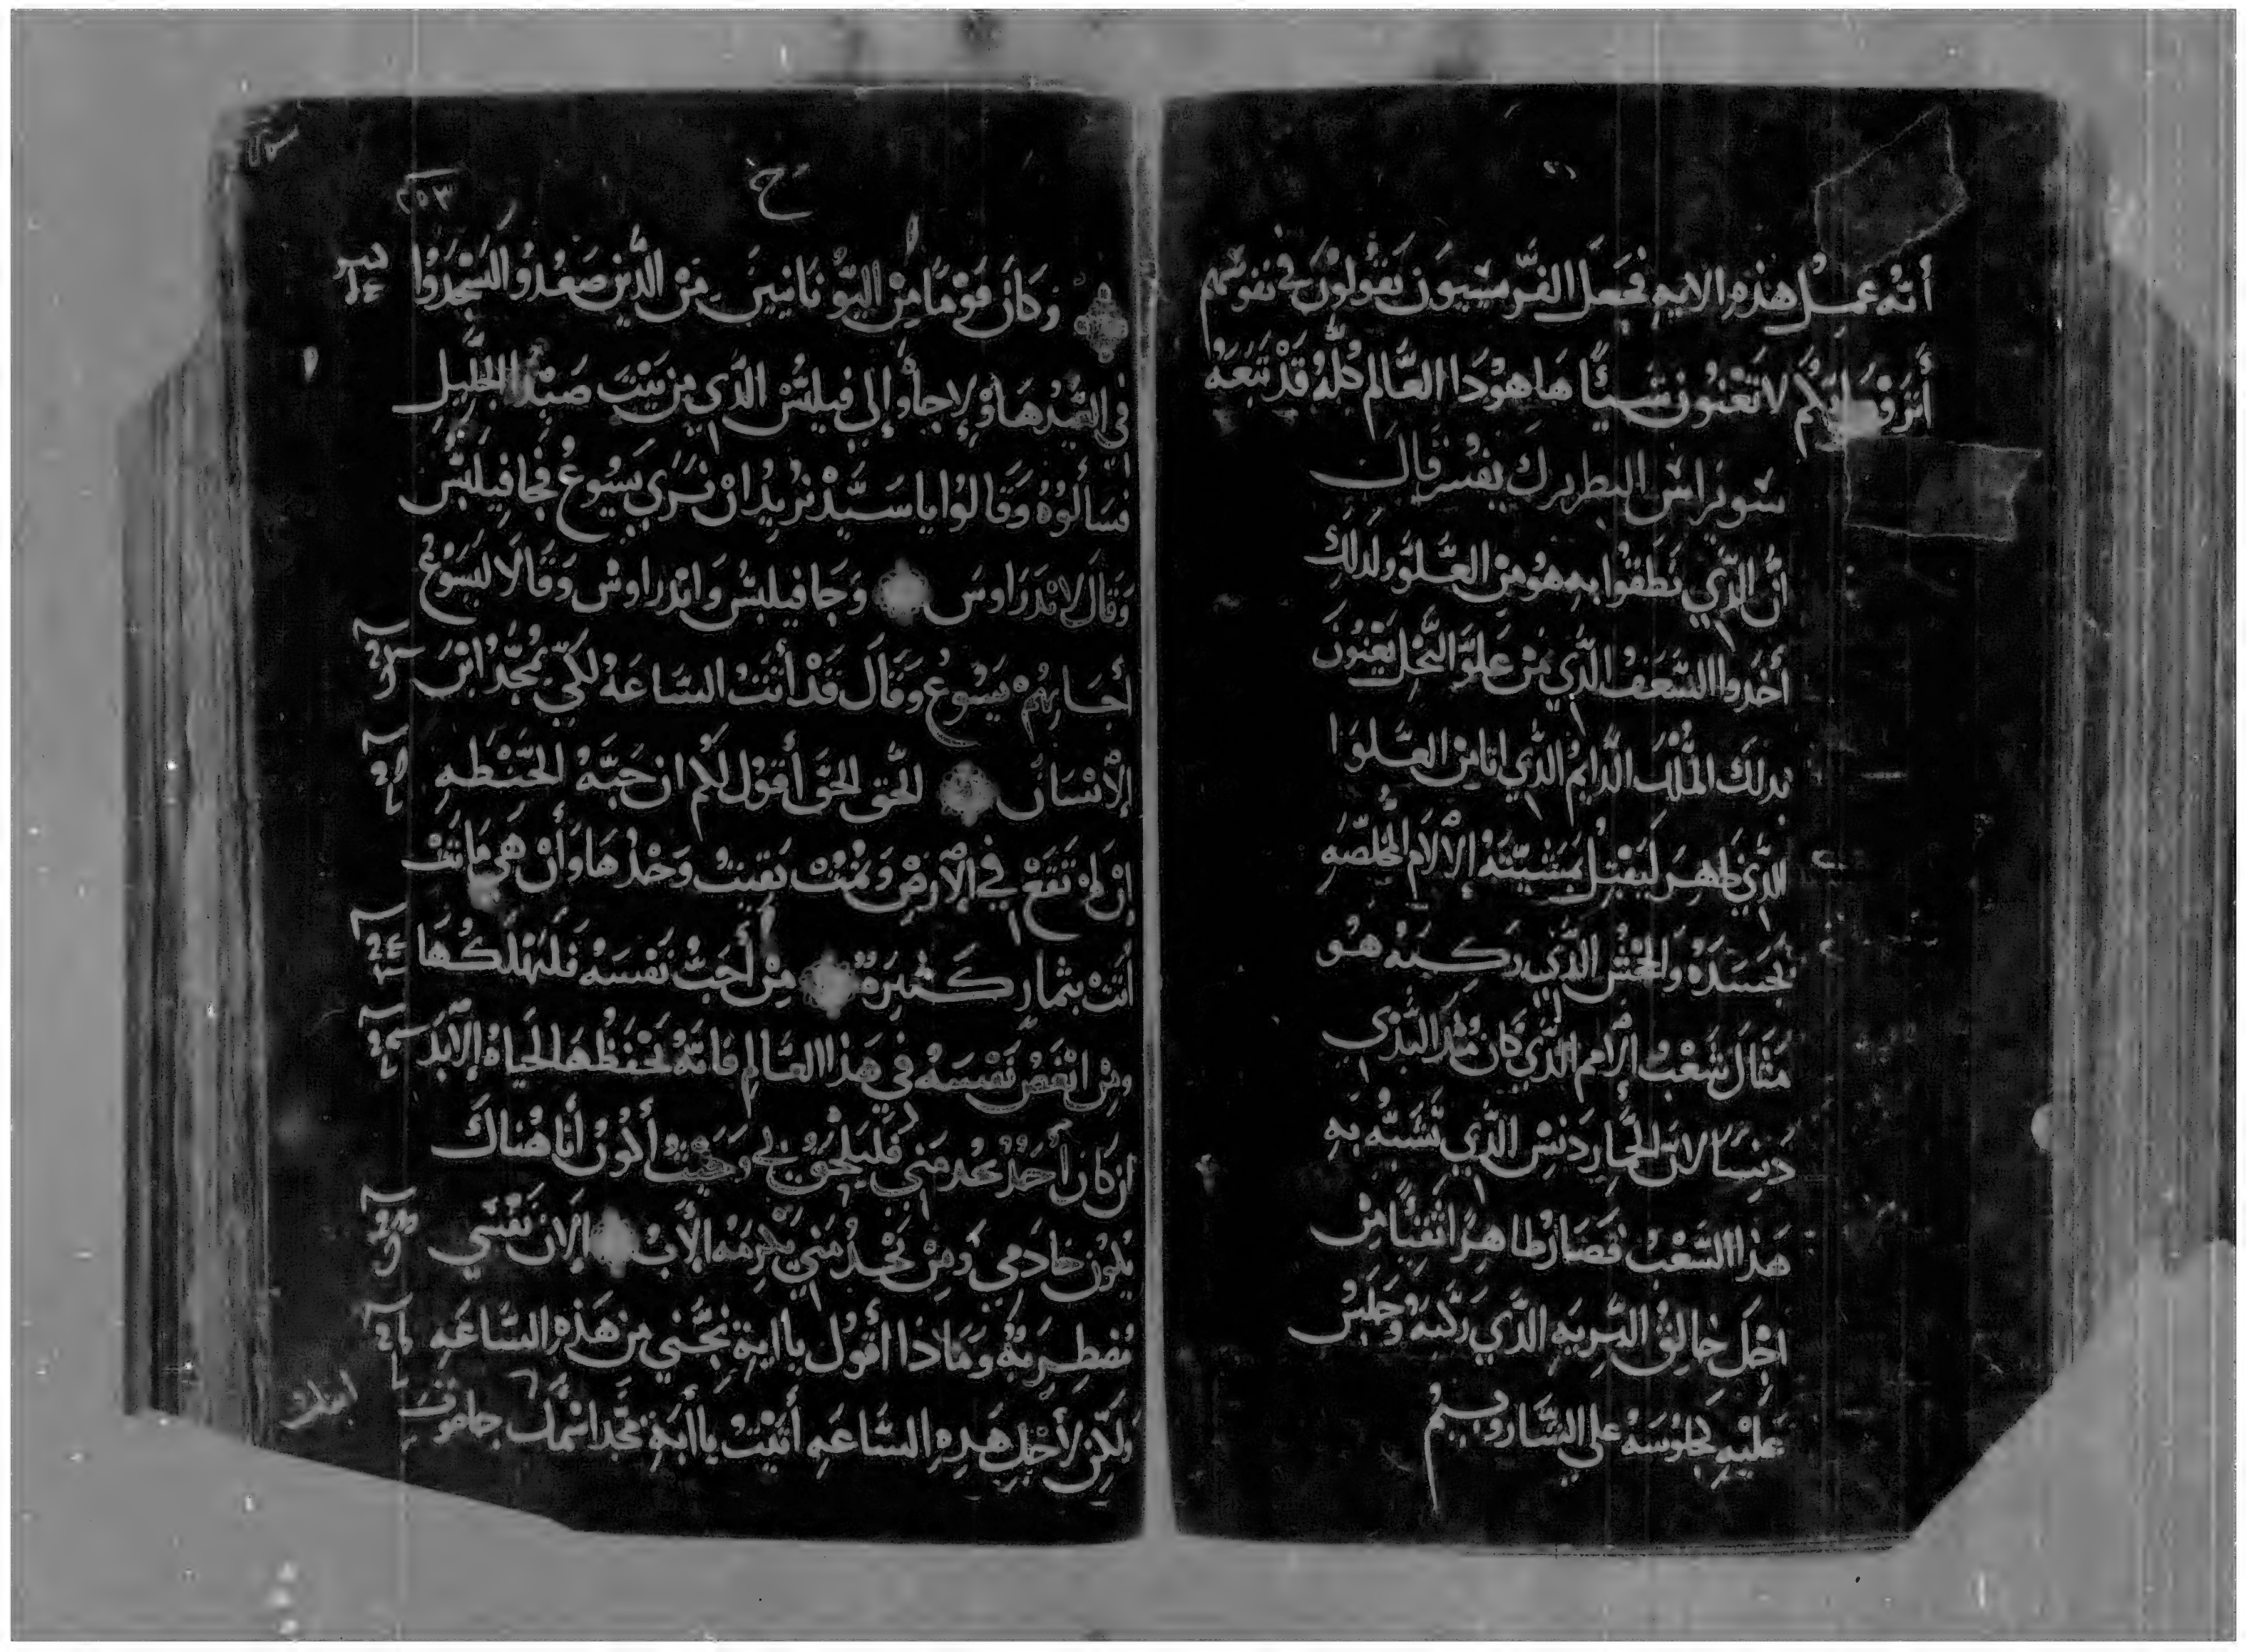 أنه عمل هذه الايه فجعل الفريسيون يقولون في نفوسهم
أترون انكم لا تعنون شيئًا ها هودا العالم كله قد تبعه
سويراس البطريرك يفسر قال
ان الذي نطقوا به هو من العلو ولذلك
أخدوا السعف الذي من علو النخل يعنون
بدلك الملك الدايم الذي اتا من العلوا
الذي ظهر ليقبل بمشيته الالام المخلصه
بجسده والجحش الذي ركبه هو
مثال شعب الأمم الذي كان
دنسا لان الحمار دنس الذي تشبه به
هذا الشعب فصار طاهرا نقيا من
اجل خالق البريه الذي ركبه وجلس
عليه كجلوسه على الشاروبيم
ح
٢٥٣
وكان قوما من اليونانيين من الذين صعدو اليسجدوا
في العيد هاولا جاوا إلى فيلبس الذي من بيت صيدا الجليل
فسألوه وقالوا يا سيد نريد ان نرى يسوع فجا فيلبس
وقال لاندراوس وجا فيلبس واندراوس وقالا ليسوع
أجابهم يسوع وقال قد أتت الساعة لكي يمجد ابن
الانسان الحق الحق أقول لكم ان حبه الحنطه
ان لم تقع في الأرض وتمت بقيت وحدها وأن هي ماتت
أتت بثمار كثيرة من أحب نفسه فليهلكها
ومن ابغض نفسه في هذا العالم فانه يحفظها لحياه الأبد
ان كان أحد يخدمني فليلحق بي وحيث أكون أنا هناك
يكون خادمي ومن يخدمني يكرمه الأب الان نفسي
مضطربة وماذا أقول يا ابة نجني من هذه الساعه
ولكن لأجل هده الساعه أتيت يا أبة مجد اسمك جا صوت